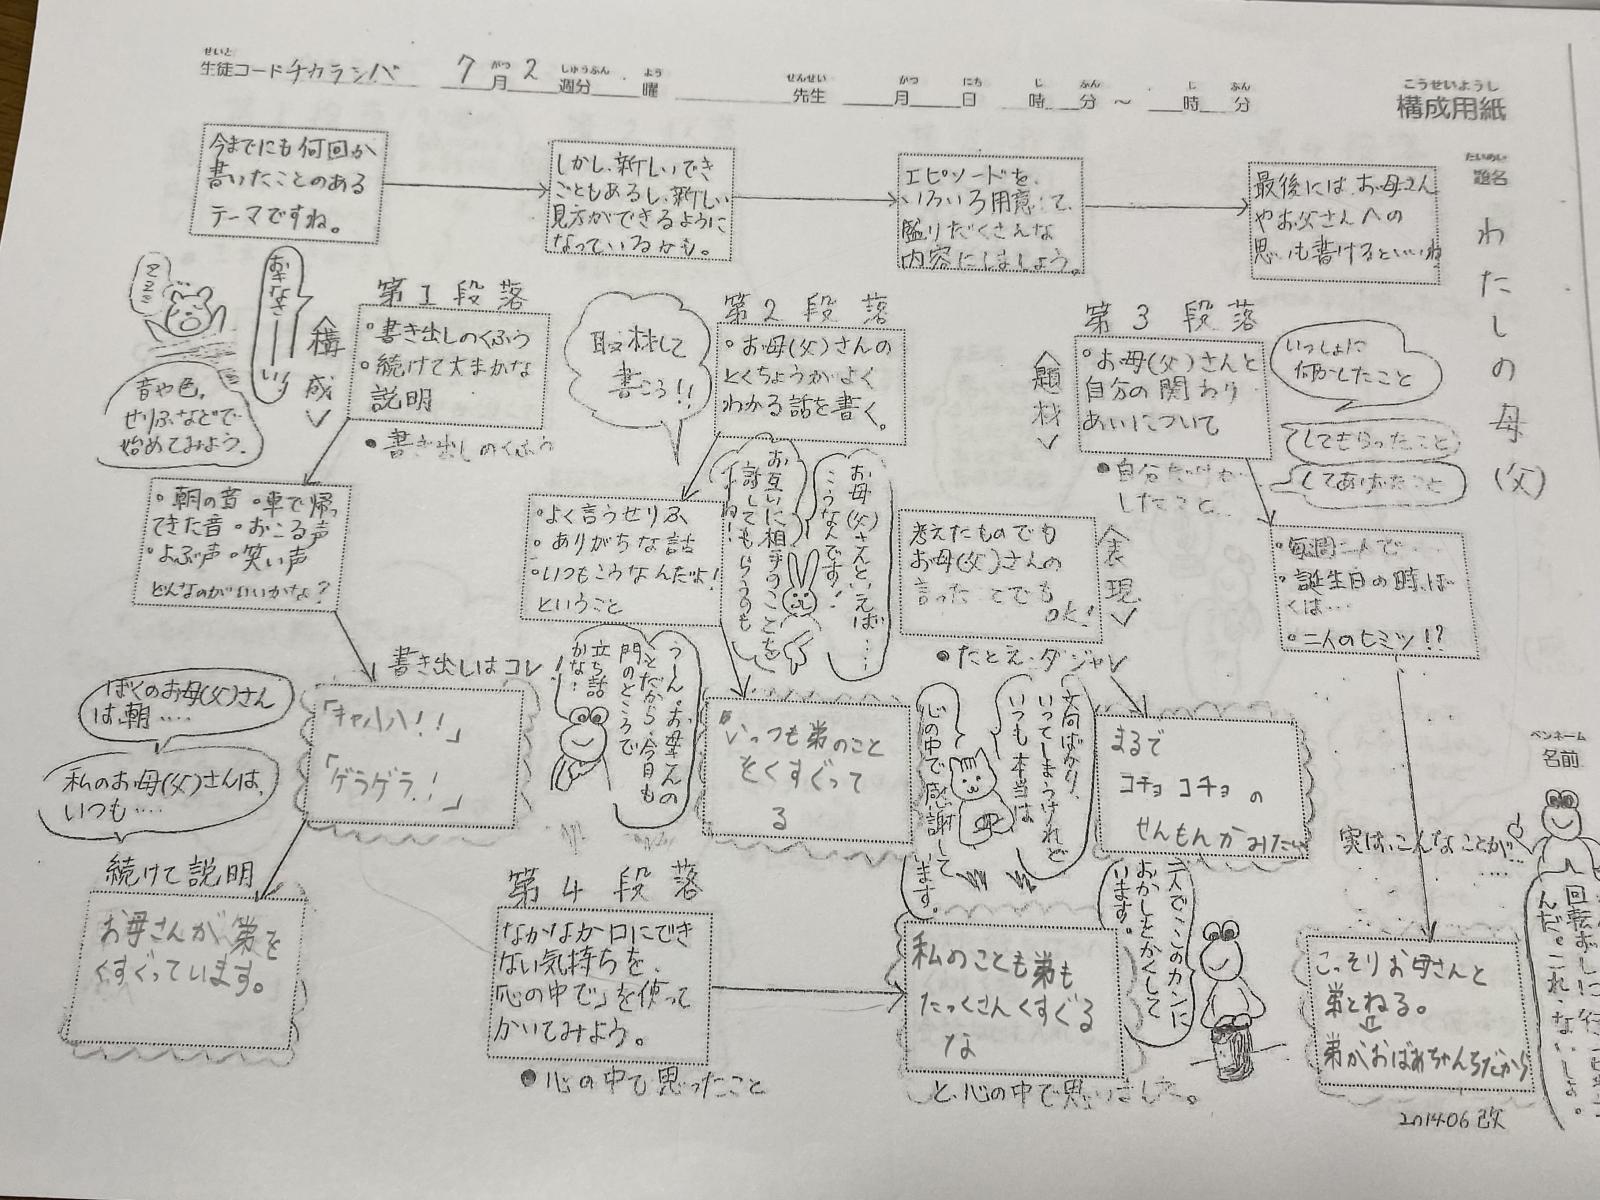 せいと
生徒コードチカラシバ 7月2週分 曜 先生 月 日 時 分 〜 時 分
がつ しゅうぶん よう せんせい がつ にち じ ふん じ ふん
こうせいようし
構成用紙
だいめい
題名
わたしの母(父)
今までにも何回か
書いたことのある
テーマですね。
しかし、新しいでき
ごともあるし、新しい
見方ができるように
なっているかも。
エピソードを、
いろいろ用意して、
盛りだくさんな
内容にしましょう。
最後には、お母さん
やお父さんへの
思いも書けるといいね
ZZZZ
おきなさーーい!
〈構成〉
第1段落
・書き出しのくふう
・続けて大まかな
説明
●書き出しのくふう
音や色、
せりふなどで
始めてみよう。
・朝の音・車で帰っ
てきた音・おこる声
・よぶ声・笑い声
どんなのがいいかな?
書き出しはコレ!
「キャハハ!!」
「ゲラゲラ!」
ぼくのお母(父)さん
は、朝‥‥
私のお母(父)さんは、
いつも‥‥
続けて説明
お母さんが弟を
くすぐっています。
取材して
書こう!!
第2段落
・お母(父)さんの
とくちょうがよく
わかる話を書く。
〈題材〉
・よく言うせりふ
・ありがちな話
・いつもこうなんだよ!
ということ
お互いに相手のことを
話してもらうのも
いいね!
お母(父)さんといえば‥‥
こうなんです!
うーん。お母さんの
ことだから、今日も
門のところで
立ち話
かな!
「いっつも弟のこと
をくすぐって
る
考えたものでも
お母(父)さんの
言ったことでも
OK!
〈表現〉
●たとえ・ダジャレ
まるで
コチョコチョの
せんもんかみたい
第3段落
・お母(父)さんと
自分の関わり
あいについて
いっしょに
何かしたこと
してもらったこと
してあげたこと
・毎週二人で‥‥
・誕生日の時、ぼ
くは‥‥
・二人のヒミツ!?
実は、こんなことが‥‥
こっそりお母さんと
弟とねる。
⇩
弟がおばあちゃんちだから
二人でこのカンに
おかしをかくして
います。
第4段落
なかなか口にでき
ない気持ちを、
「心の中で」を使って
かいてみよう。
●心の中で思ったこと
文句ばかり、
いってしまうけれど
いつも本当は
心の中で感謝して
います。
私のことも弟も
たっくさんくすぐる
な
と、心の中で思いました。
ペンネーム
名前
んだ。これ、ないしょ。
201406改